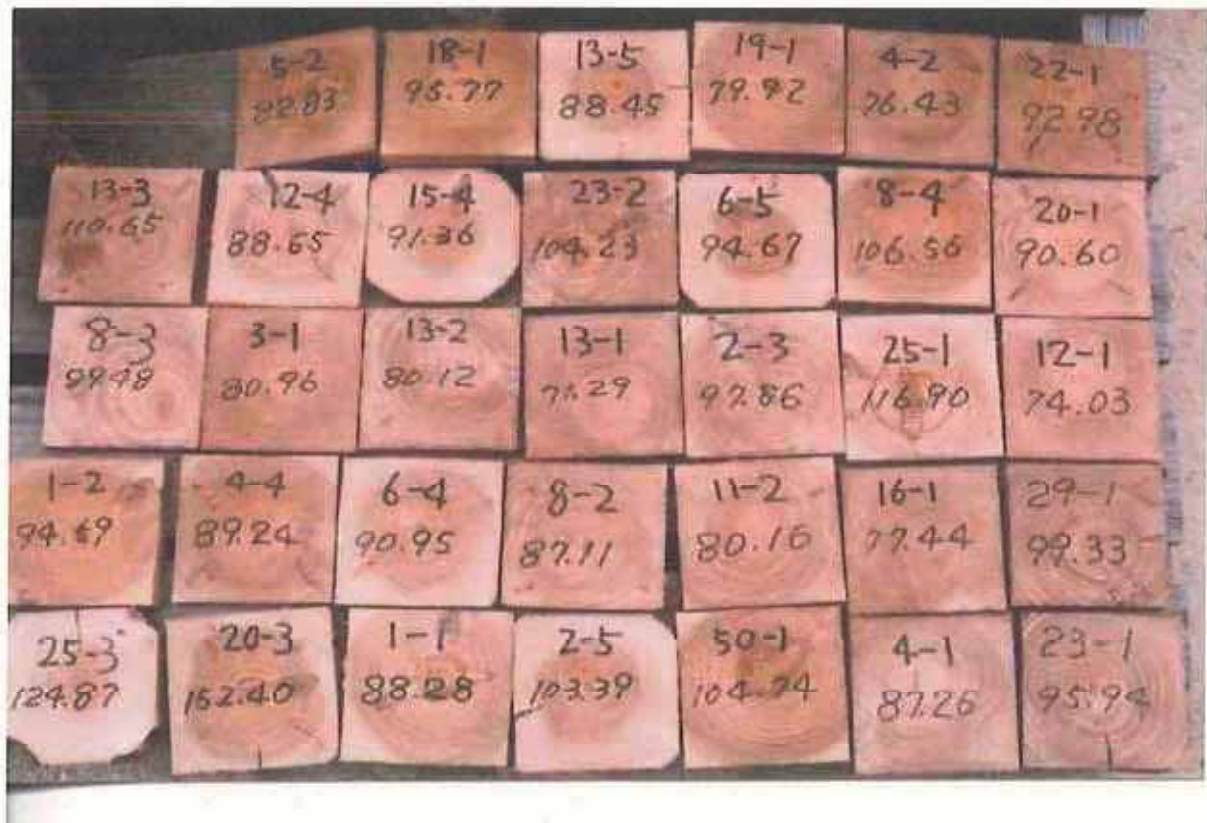 5-2
82.83
18-1
95.77
13-5
88.45
19-1
79.92
4-2
76.43
22-1
92.98
13-3
110.65
12-4
88.65
15-4
91.36
23-2
104.23
6-5
94.67
8-4
106.56
20-1
90.60
8-3
99.48
3-1
80.96
13-2
80.12
13-1
2-3
97.86
25-1
116.90
12-1
74.03
1-2
94.69
4-4
89.24
6-4
90.95
8-2
87.11
11-2
80.16
16-1
77.44
29-1
99.33
25-3
124.87
20-3
1-1
88.28
2-5
103.39
50-1
104.74
4-1
87.26
23-1
95.94